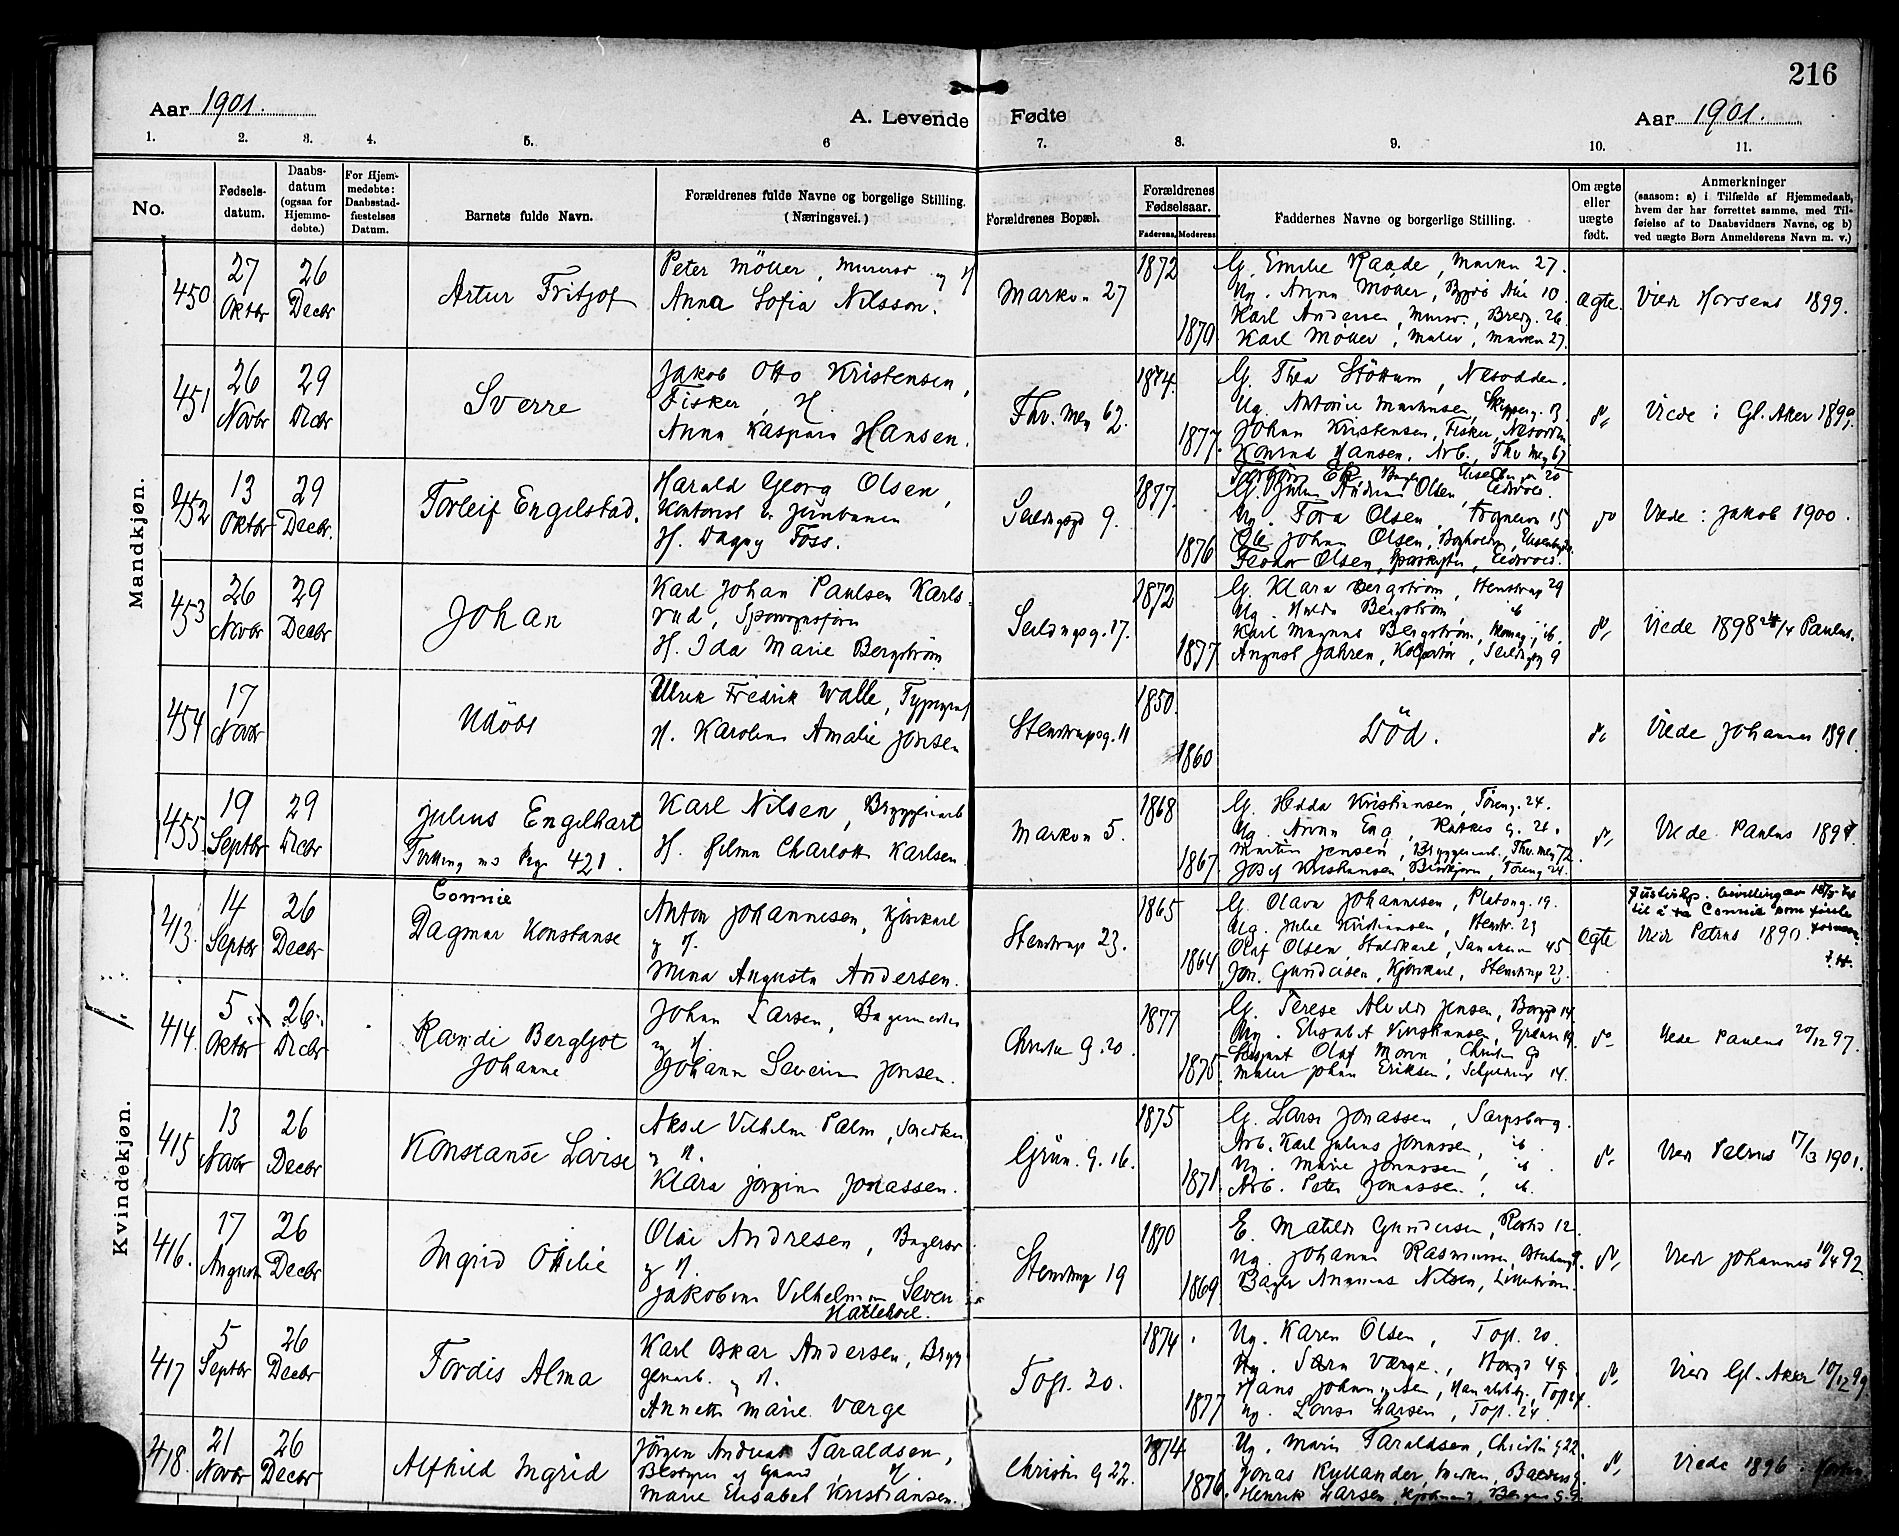 216
Aar 1901.
A. Levende Fødte
Aar 1901.
1. 2. 3. 4. 5. 6 7. 8. 9. 10. 11.
No.
Fødsels-
datum.
Daabs-
datum
(ogsaa for
Hjemme-
døbte.)
For Hjem-
medøbte:
Daabsstad-
fæstelses
Datum.
Barnets fulde Navn.
Forældrenes fulde Navne og borgelige Stilling.
(Næringsvei.)
Forældrenes Bopæl.
Forældrenes
Fødselsaar.
Faderens. Moderens
Faddernes Navne og borgerlige Stilling.
Om ægte
eller
uægte
født.
Anmerkninger
(saasom: a) i Tilfælde af Hjemmedaab,
hvem der har forrettet samme, med Til-
føielse af to Daabsvidners Navne, og b)
ved uægte Børn Anmelderens Navn m. v.)
Mandkjøn.
450
27
Oktbr
26
Decbr
Artur Fritjof
Peter Möller, Murersv og H
Anna Sofia Nilsson.
Markvn 27
1872
1870
G. Emilie Raade, Markvn 27.
Ug. Anna Möller, 10.
Karl Andersen, Mursv., Bredg. 26
Karl Möller, Maler, Markvn 27.
ægte.
Vied Horsens 1899.
451
26
Novbr
29
Decbr
Sverre
Jakob Otto Kristensen,
Fisker, H.
Anna Kaspara Hansen.
Thv. Mey 62.
1874.
1877.
G. Thea Stöttum, Nesodden.
Ug. Antonie Martinsen, 13
Johan Kristensen, Fisker, Nesodden
Konrad Hansen, Arb., Thv Mey 67
do
Viede i Gl. Aker 1899.
452
13
Oktbr
29
Decbr.
Torleif Engelstad.
Harald Georg Olsen,
Kontorist v. Jernbanen
H. Dagny Foss.
Seildugsgd 9.
1877.
1876
G. Andrea Olsen, Eidsvold.
Ug. Tora Olsen, Fogneren 15
Ole Johan Olsen,
Teodor Olsen, Eidsvold.
do
Viede: Jakob 1900.
453
26
Novbr
29
Decbr
Johan
Karl Johan Paulsen Karls-
rud, Sporvognsfører
H. Ida Marie Bergström
Seildugsg. 17.
1872
1877
G. Klara Bergström, Stenstrup 29
Ug. Hulda Bergström ib
Karl Magnus Bergström, ib.
August Jahren, Kolportör, Seildugsg 9
do
Viede 1898 24/4 Paulus.
454
17
Novbr
Udöbt
Ulrik Fredrik Walle, Typograf
H. Karoline Amalie Jonsen
Stenstrupsg. 11
1850.
1860
Död.
do
Viede Johannes 1891.
455
19
Septbr
29
Decbr
Julius Engelhart
Tvilling m Pige 421.
Karl Nilsen, Bryggeriarb
H. Hilma Charlotte Karlsen.
Markvn 5.
1868
1867
G. Hedda Kristiansen, Töieng. 24.
Ug. Anna Eng, g. 26.
Martin Jensen, Bryggeriarb., Thv. Mey 72.
Josef Kristiansen, Töieng 24.
do
Viede Paulus 1897.
Kvindekjøn.
413.
14
Septbr
26
Decbr
Connie
Dagmar Konstanse
Anton Johannesen, Kjörekarl
og H.
Mina Augusta Andersen.
Stenstrup 23.
1865
1864
G. Olava Johannesen, Platoug. 19.
Ug. Julie Kristiansen, Stenstr. 23
Olaf Olsen, Staldkarl, 45
Joh. Gundersen, Kjörekarl, Stenstrup 23.
ægte
til å ta Connie som første
Vied Petrus 1890. fornavn.
414.
5
Oktbr
26
Decbr
Randi Bergljot
Johanne
Johan Larsen, Bagermester
og H.
Johanne Severine Jensen.
Christies g. 20.
1877
1875
G. Terese Alvilde Jensen, 14.
Ug. Elisabet Kristiansen, Grænsen 19.
Sersjant Olaf Moren, Christies Gd
Maler Johan Eriksen, 14.
do
Viede Paulus 20/12 97.
415
13
Novbr
26
Decbr
Konstanse Lovise
Aksel Vilhelm Palm, Snedker
og H.
Klara Jörgine Jonassen.
Grün. g. 16.
1875
1871.
G. Lovise Jonassen, Sarpsborg.
Arb. Karl Julius Jonassen, ib
Ug. Marie Jonassen ib.
Arb. Peter Jonassen, ib.
do
Vied Petrus 17/3 1901.
416.
17
August
26
Decbr
Ingrid Otilie
Olai Andresen, Bagersv.
og H.
Jakobine Vilhelmine Seven
Hallehoel.
Stenstrup 19
1870
1869
E. Matilde Gundersen, 12.
Ug. Johanne Rasmussen,
Bager Annæus Nilsen, Lilleström.
do
Vied Johannes 18/4 92.
417
5
Septbr
26
Decbr
Tordis Alma
Karl Oskar Andersen, Bryg
geriarb. og H.
Annette Marie Værge
Toft. 20.
1874.
1877
Ug. Karen Olsen, Toft. 20.
Ug. Sara Værge, 49.
Hans Johannesen, Toft 24.
Ug. Lovise Larsen, Toft. 24.
do
Vied Gl. Aker 10/12 99
418.
21
Novbr
26
Decbr
Alfhild Ingrid
Jörgen Andreas Taraldsen,
Bestyrer af Gaard, H.
Marie Elisabet Kristiansen.
Christies g 22.
1874
1876.
Ug. Marie Taraldsen, Christies g 22.
Jonas Kyllander, Balders g.
Henrik Larsen, Kjöbmand, Bergens g. 9.
do
Viede 1896 i